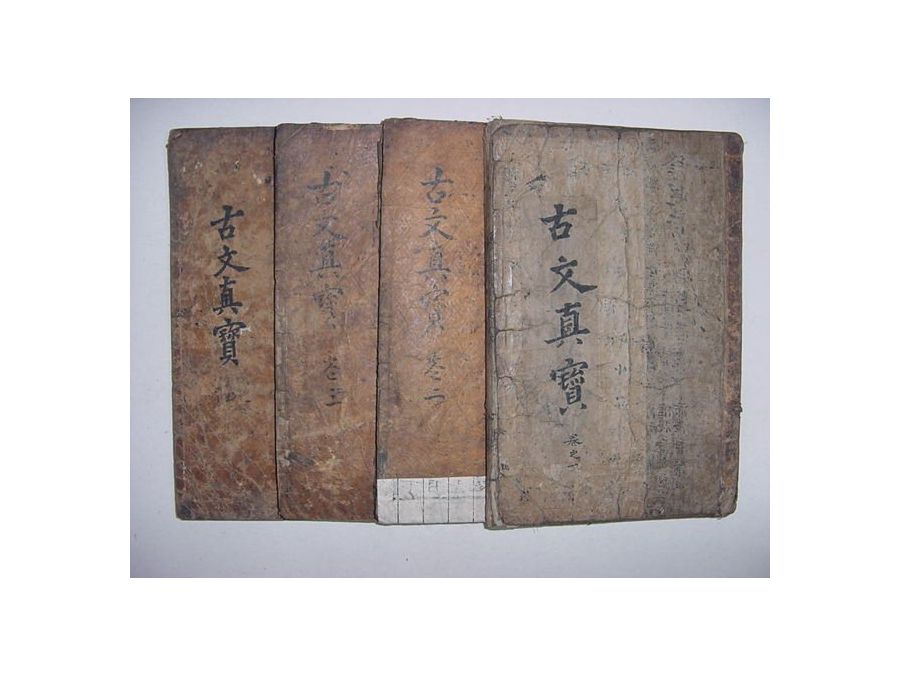 古文真寶 卷之一
古文真寶 卷二
古文真寶 卷三
古文真寶